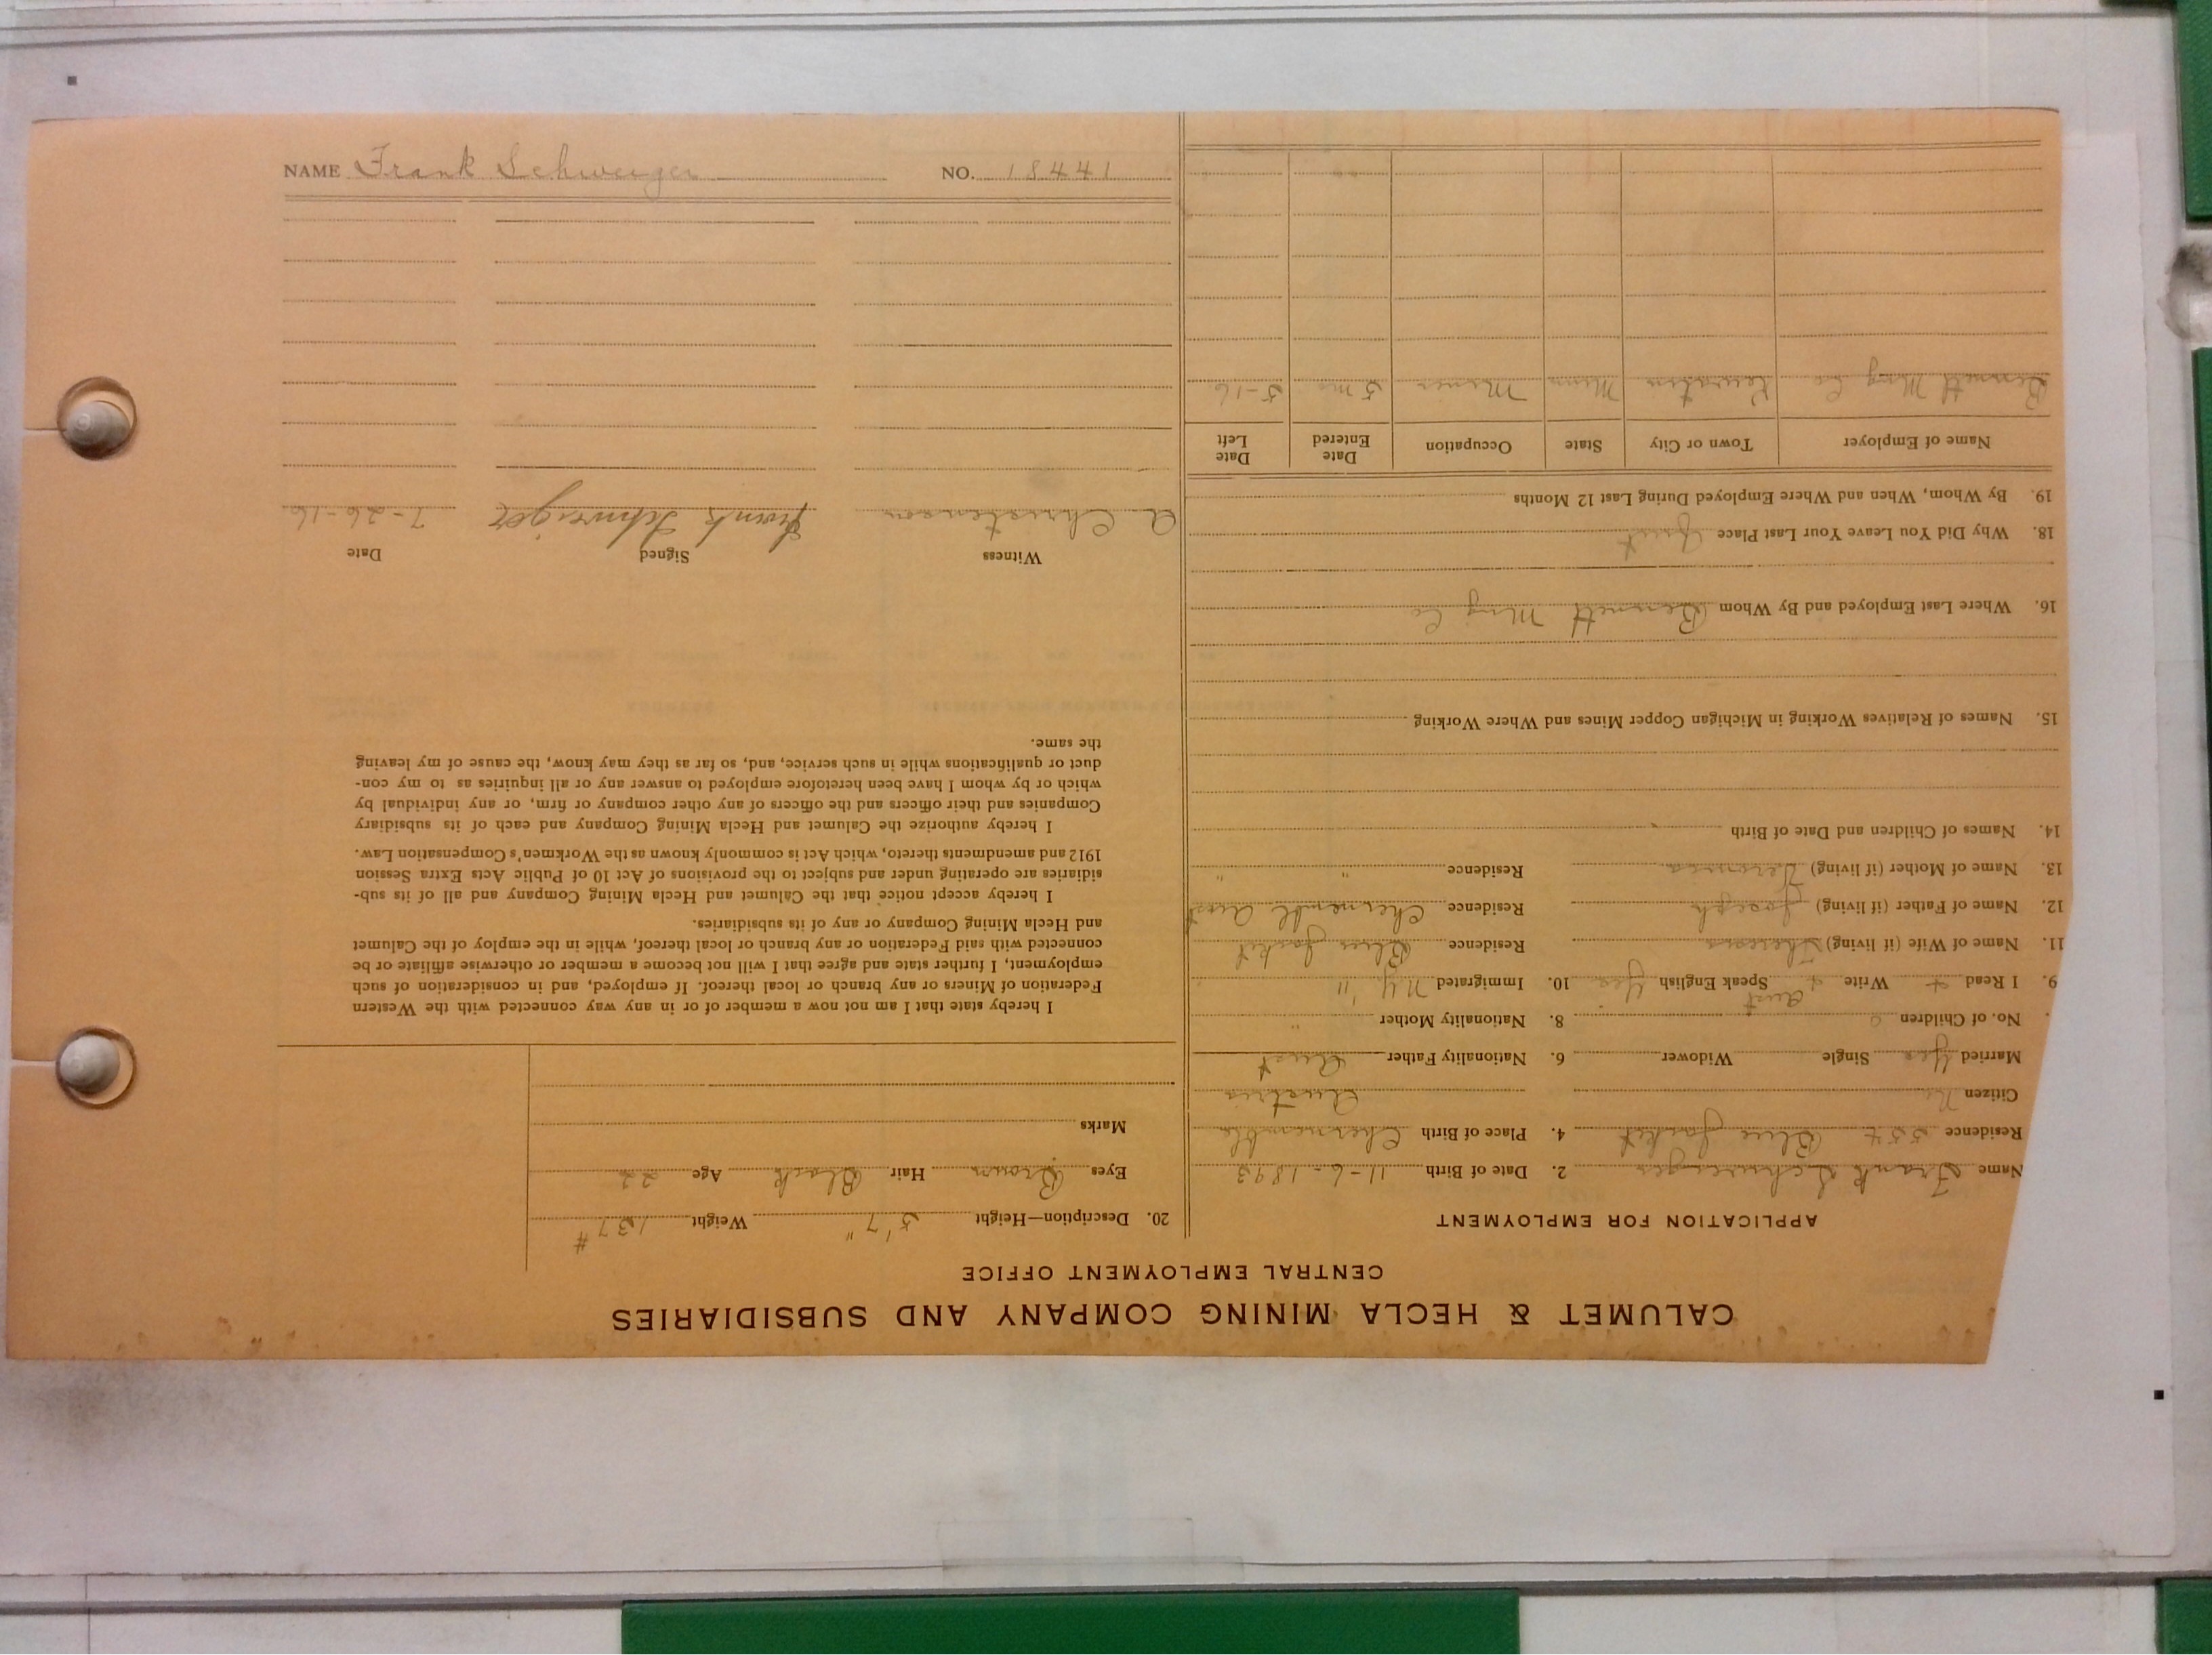 CALUMET & HECLA MINING COMPANY AND SUBSIDIARIES
CENTRAL EMPLOYMENT OFFICE
APPLICATION FOR EMPLOYMENT
Name Frank Schweiger 2. Date of Birth 11-6-1893
Residence 554 Blue Jacket 4. Place of Birth Chernemble
Citizen No Austria
Married Yes Single Widower 6. Nationality Father Aust
No. of Children 0 8. Nationality Mother "
9. I Read + Write + Aust Speak English Yes 10. Immigrated N.Y. '11
11. Name of Wife (if living) Theresa Residence Blue Jacket
12. Name of Father (if living) Joseph Residence Chernembl Aust
13. Name of Mother (if living) Residence " "
14. Names of Children and Date of Birth
15. Names of Relatives Working in Michigan Copper Mines and Where Working
16. Where Last Employed and By Whom Bennett Mng Co
18. Why Did You Leave Your Last Place Quit
19. By Whom, When and Where Employed During Last 12 Months
Name of Employer Town or City State Occupation Date Entered Date Left
Bennett Mng Co Kewatin Minn Miner 5 mo 5-16
20. Description—Height 5'7" Weight 137#
Eyes Brown Hair Black Age 22
Marks
I hereby state that I am not now a member of or in any way connected with the Western
Federation of Miners or any branch or local thereof. If employed, and in consideration of such
employment, I further state and agree that I will not become a member or otherwise affiliate or be
connected with said Federation or any branch or local thereof, while in the employ of the Calumet
and Hecla Mining Company or any of its subsidiaries.
I hereby accept notice that the Calumet and Hecla Mining Company and all of its sub-
sidiaries are operating under and subject to the provisions of Act 10 of Public Acts Extra Session
1912 and amendments thereto, which Act is commonly known as the Workmen's Compensation Law.
I hereby authorize the Calumet and Hecla Mining Company and each of its subsidiary
Companies and their officers and the officers of any other company or firm, or any individual by
which or by whom I have been heretofore employed to answer any or all inquiries as to my con-
duct or qualifications while in such service, and, so far as they may know, the cause of my leaving
the same.
Witness Signed Date
A Christensen Frank Schweiger 7-26-16
NAME Frank Schweiger NO. 18441